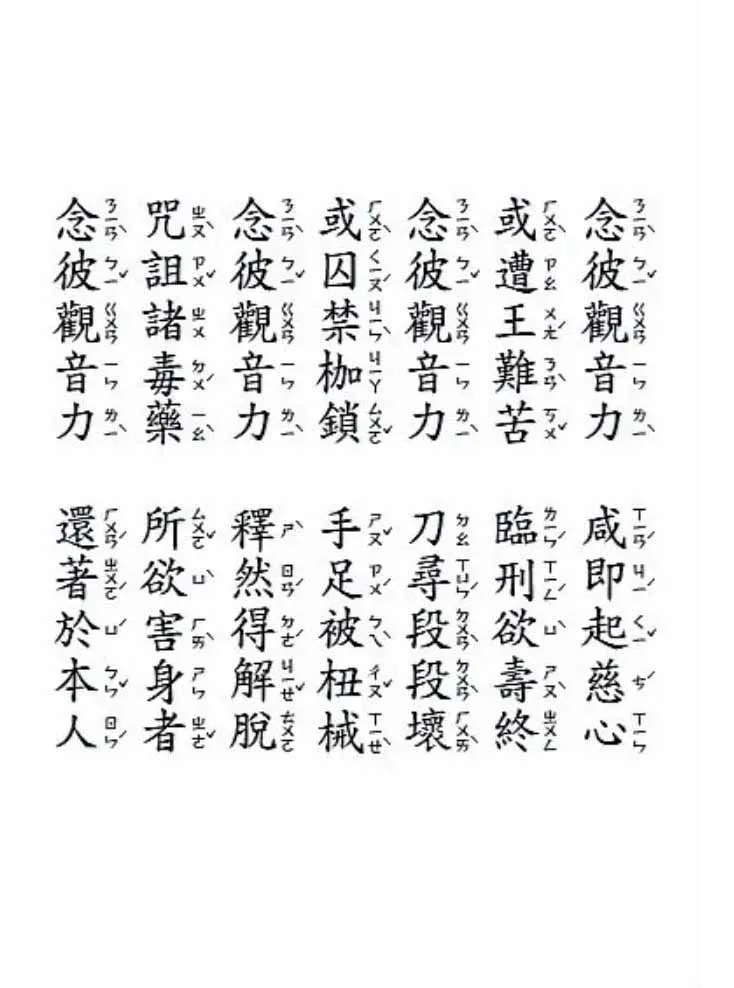 念彼觀音力 咸即起慈心
或遭王難苦 臨刑欲壽終
念彼觀音力 刀尋段段壞
或囚禁枷鎖 手足被杻械
念彼觀音力 釋然得解脫
咒詛諸毒藥 所欲害身者
念彼觀音力 還著於本人